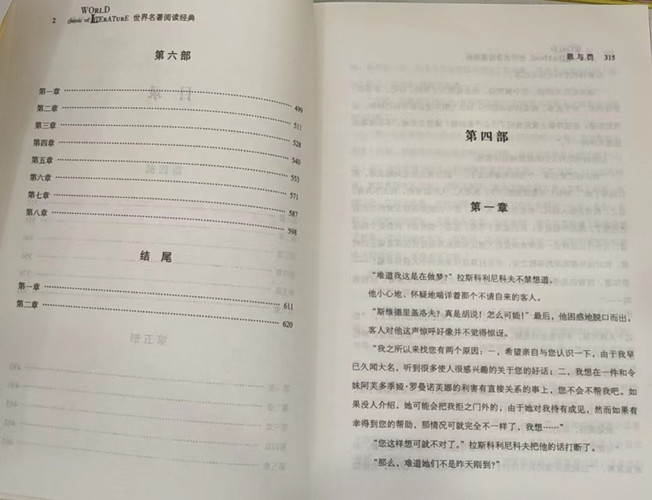 2
WORLD
Classic of LITERATURE 世界名著阅读经典
第六部
第一章 499
第二章 511
第三章 528
第四章 540
第五章 553
第六章 571
第七章 587
第八章 598
结尾
第一章 611
第二章 620
罪与罚 315
第四部
第一章
“难道我这是在做梦？”拉斯科利尼科夫不禁想道。
他小心地、怀疑地端详着那个不请自来的客人。
“斯维德里盖洛夫？真是胡说！怎么可能！”最后，他困惑地脱口而出，
客人对他这声惊呼好像并不觉得惊讶。
“我之所以来找您有两个原因：一、希望亲自与您认识一下，由于我早
已久闻大名，听到很多使人很感兴趣的关于您的好话；二、我想在一件和令
妹阿芙多季娅·罗曼诺芙娜的利害有直接关系的事上，您不会不帮我吧。如
果没人介绍，她可能会把我拒之门外的，由于她对我持有成见，然而如果有
幸得到您的帮助，那情况可就完全不一样了，我想……”
“您这样想可就不对了。”拉斯科利尼科夫把他的话打断了。
“那么，难道她们不是昨天刚到？”